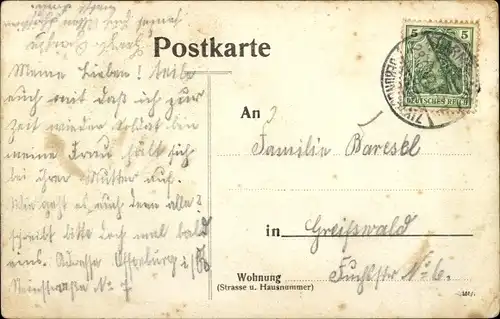 Postkarte
Meine Lieben! Teile
euch mit daß ich zur
Zeit wieder Soldat bin
meine Frau hält sich
bei ihrer Mutter auf.
Wie geht es euch denn alle?
schreibt bitte doch mal bald
eins. Adresse Osterburg i/
No 7
An
Familie Baresel
in Greifswald
Wohnung
(Strasse u. Hausnummer)
No 6.
5 5
DEUTSCHES REICH